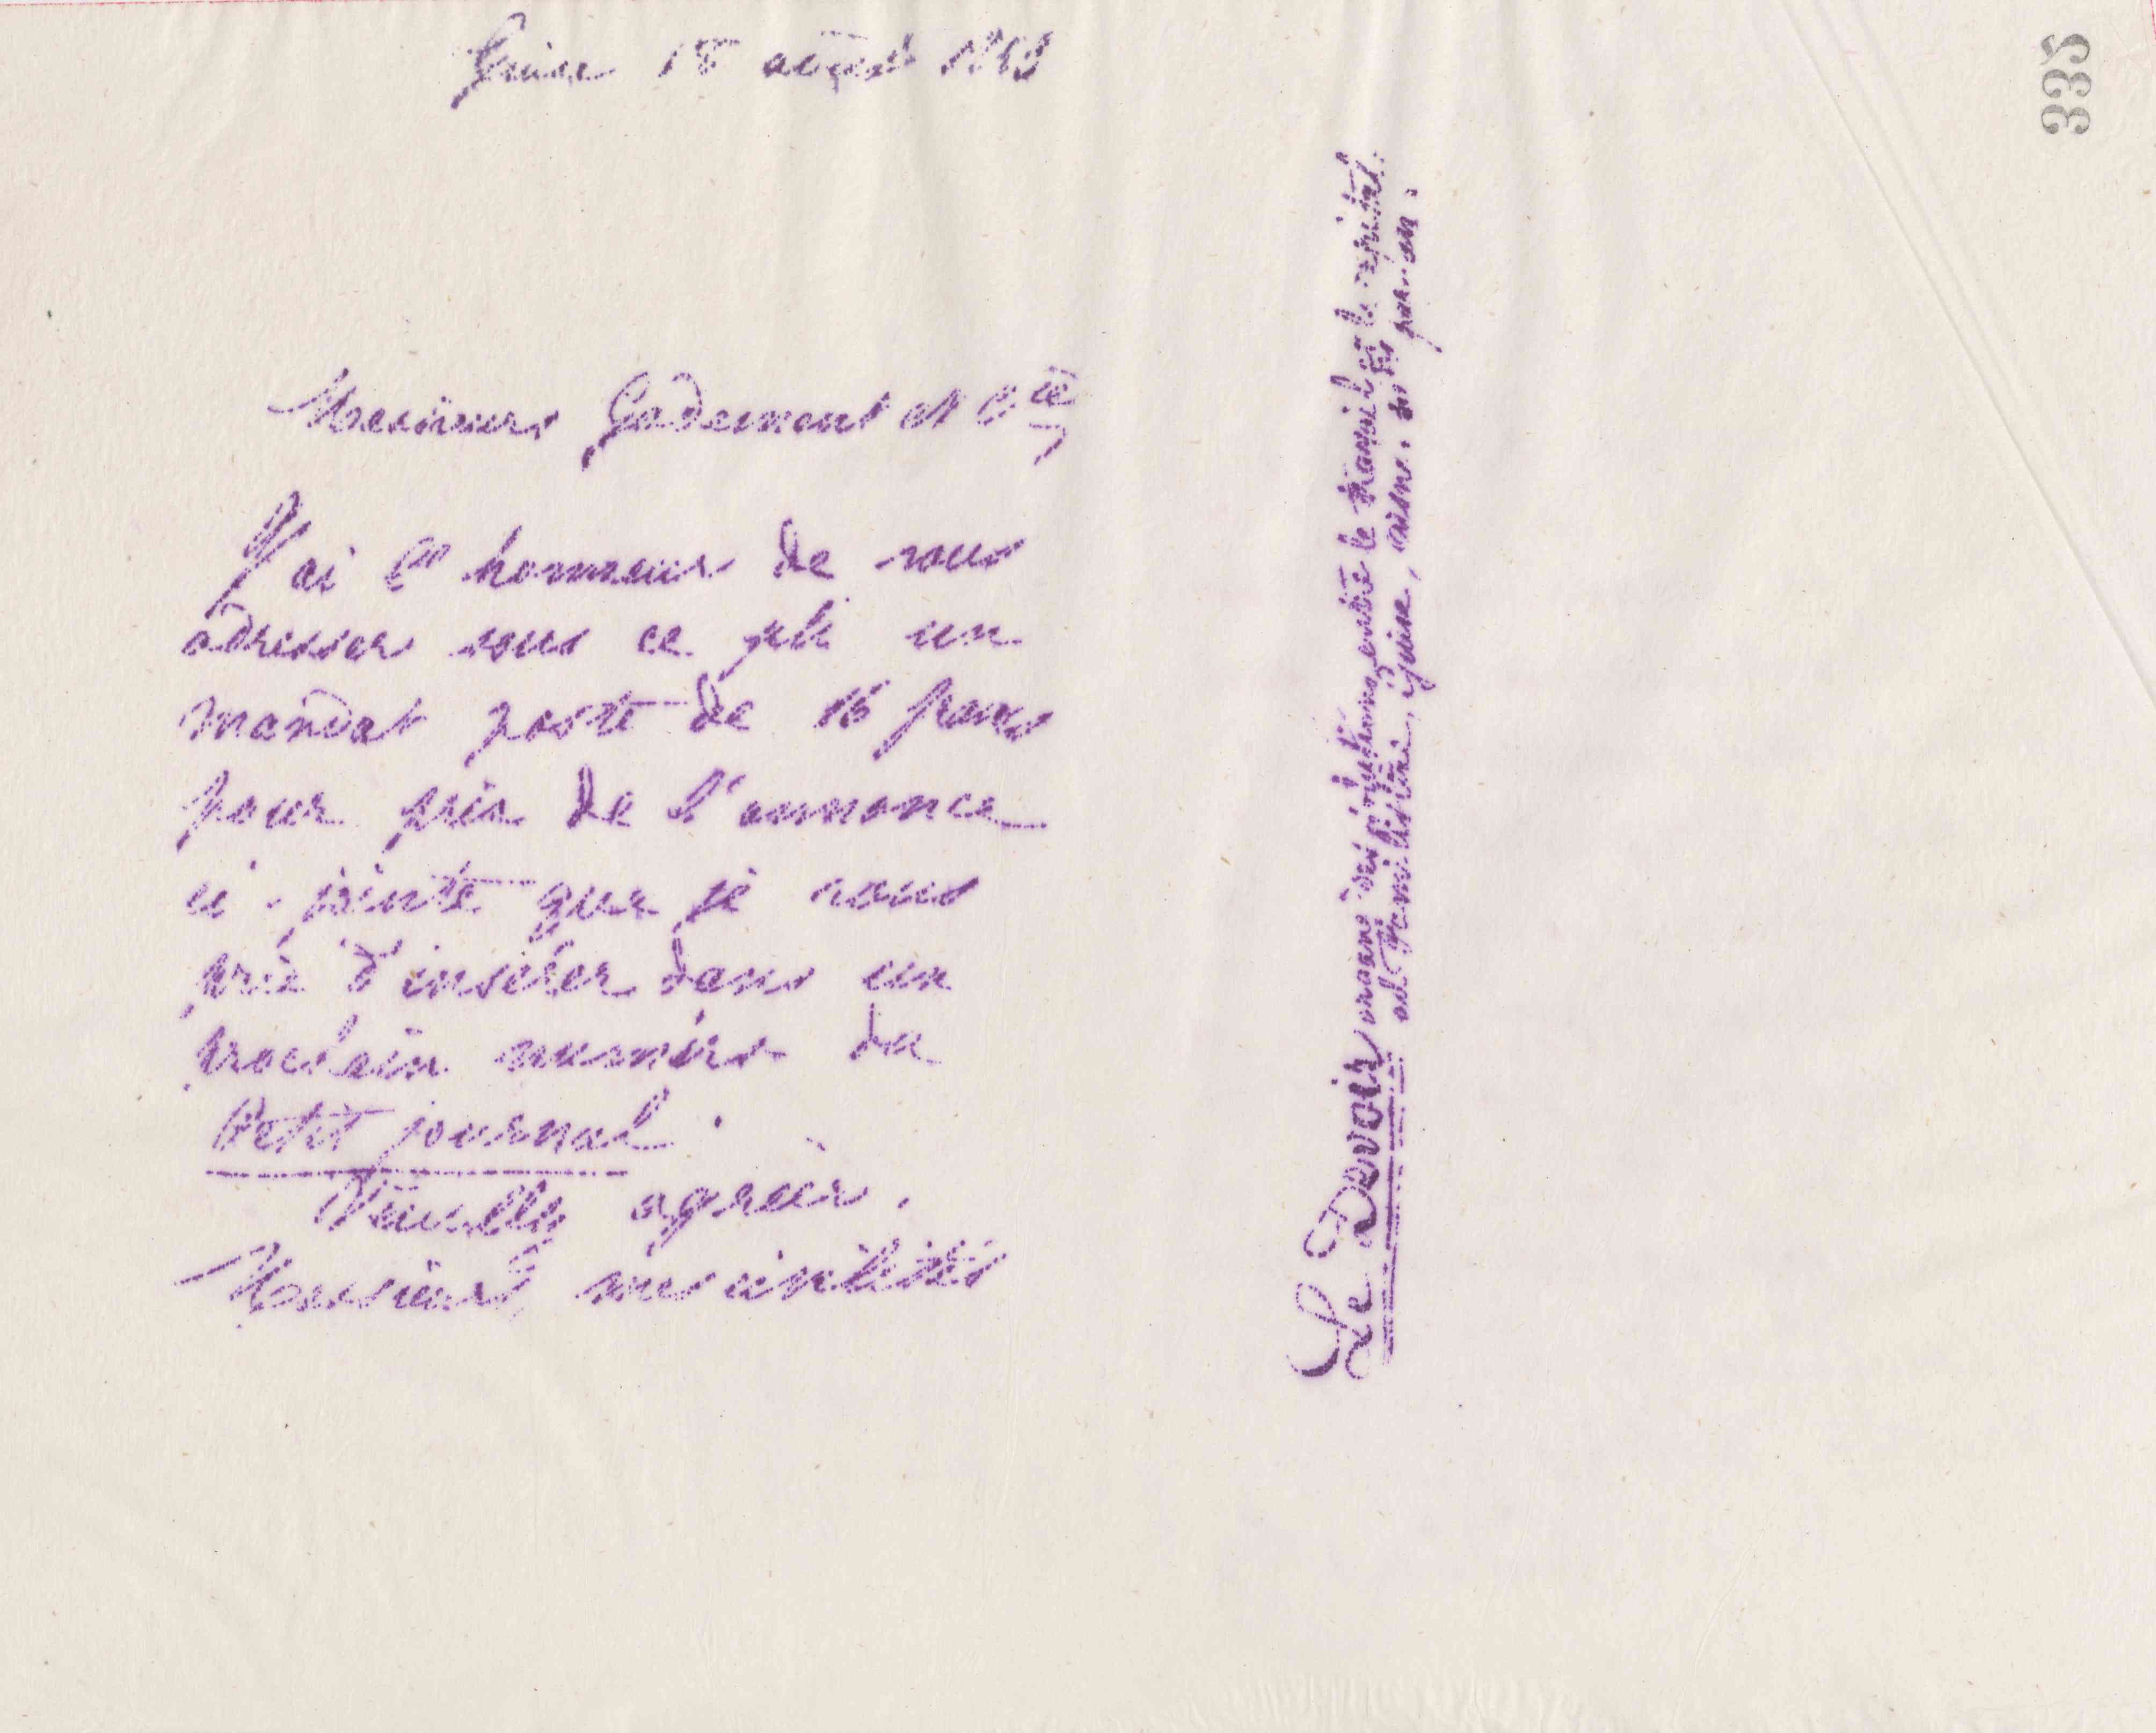 Guise 18 août 1883
Messieurs Gademont et Cie
J'ai l'honneur de vous
adresser sous ce pli un
mandat poste de 16 francs
pour prix de l'annonce
ci-jointe que je vous
prie d'insérer dans un
prochain numéro du
Petit journal.
Veuillez agréer,
Messieurs, mes civilités
Le Devoir organe des solutions entre le travail et le capital.
au Familistère, Guise, Aisne. par an.
335